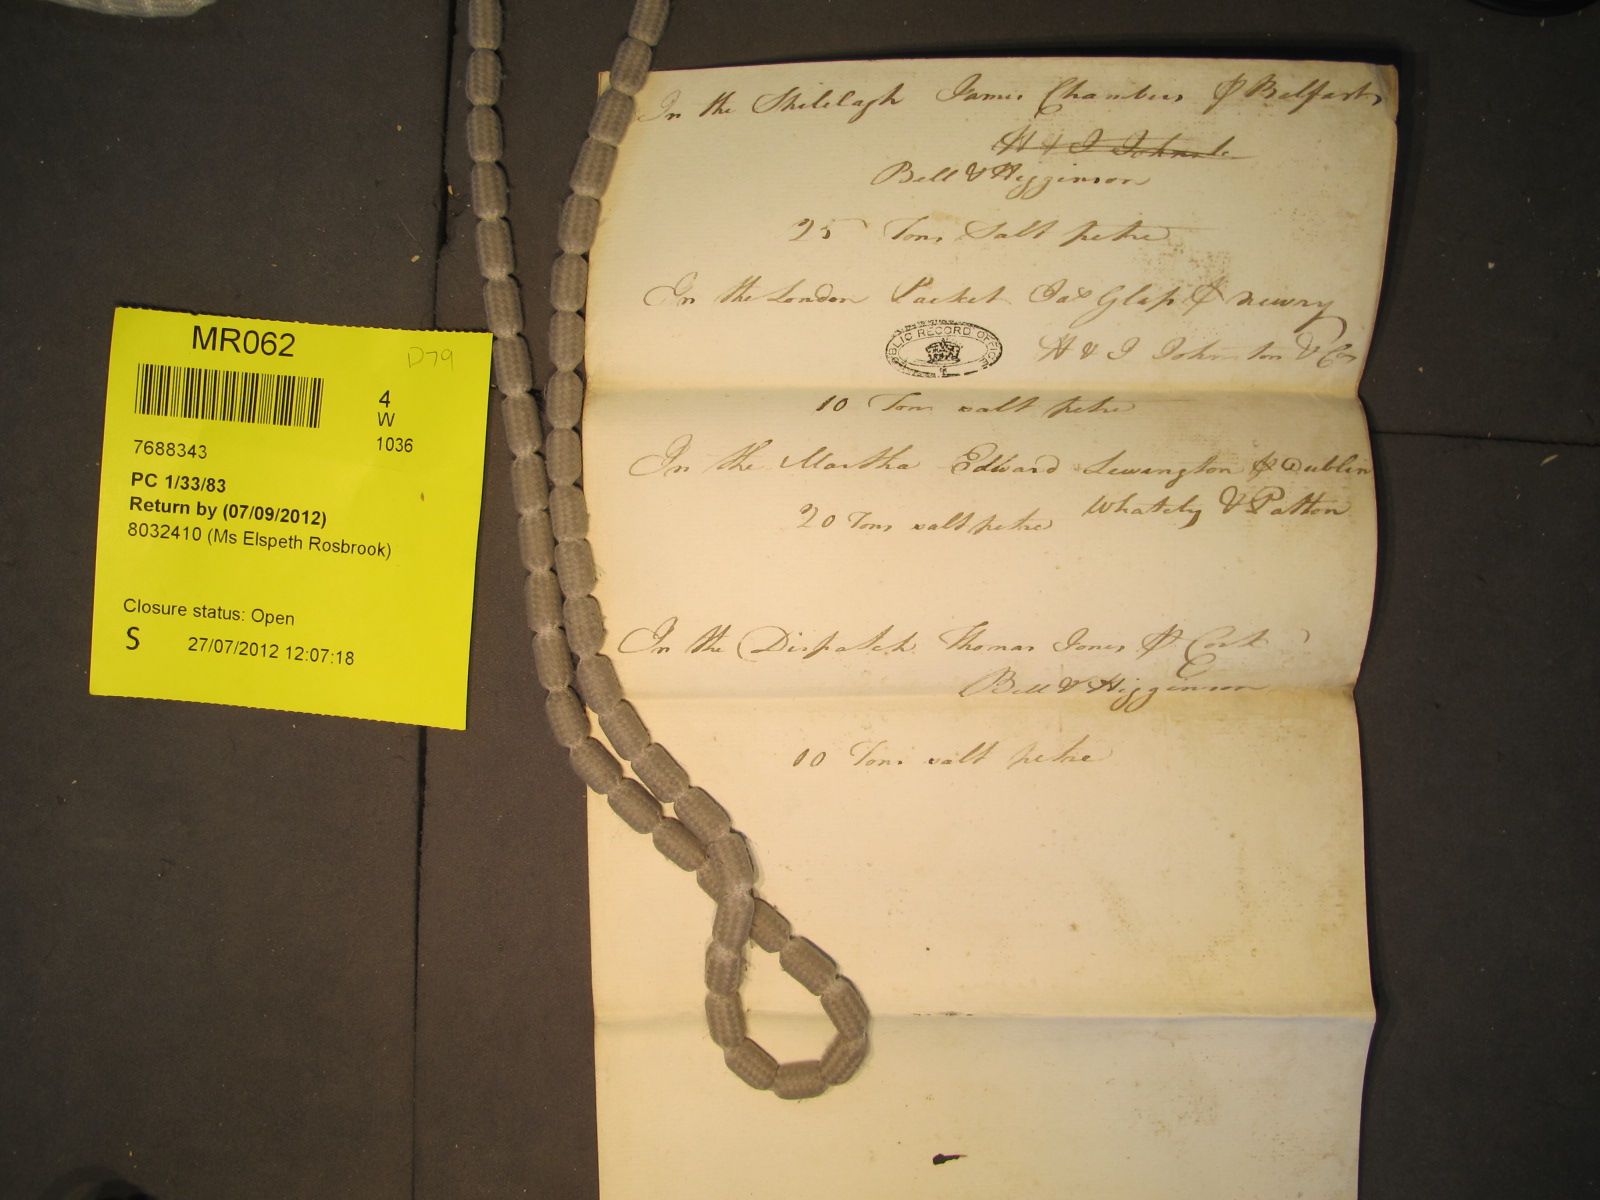 MR062
D79
4
W
1036
7688343
PC 1/33/83
Return by (07/09/2012)
8032410 (Ms Elspeth Rosbrook)
Closure status: Open
S 27/07/2012 12:07:18
In the Shilelagh James Chambers P Belfast
H & I Johns
Bell & Higginson
25 Tons Salt petre
In the London Packet Jas Glass P Newry
PUBLIC RECORD OFFICE
H & I Johnston & Co
10 Tons salt petre
In the Martha Edward Lewington P Dublin
Whately & Patton
20 Tons salt petre
In the Dispatch Thomas Jones P Cork
Bell & Higginson
10 Tons salt petre